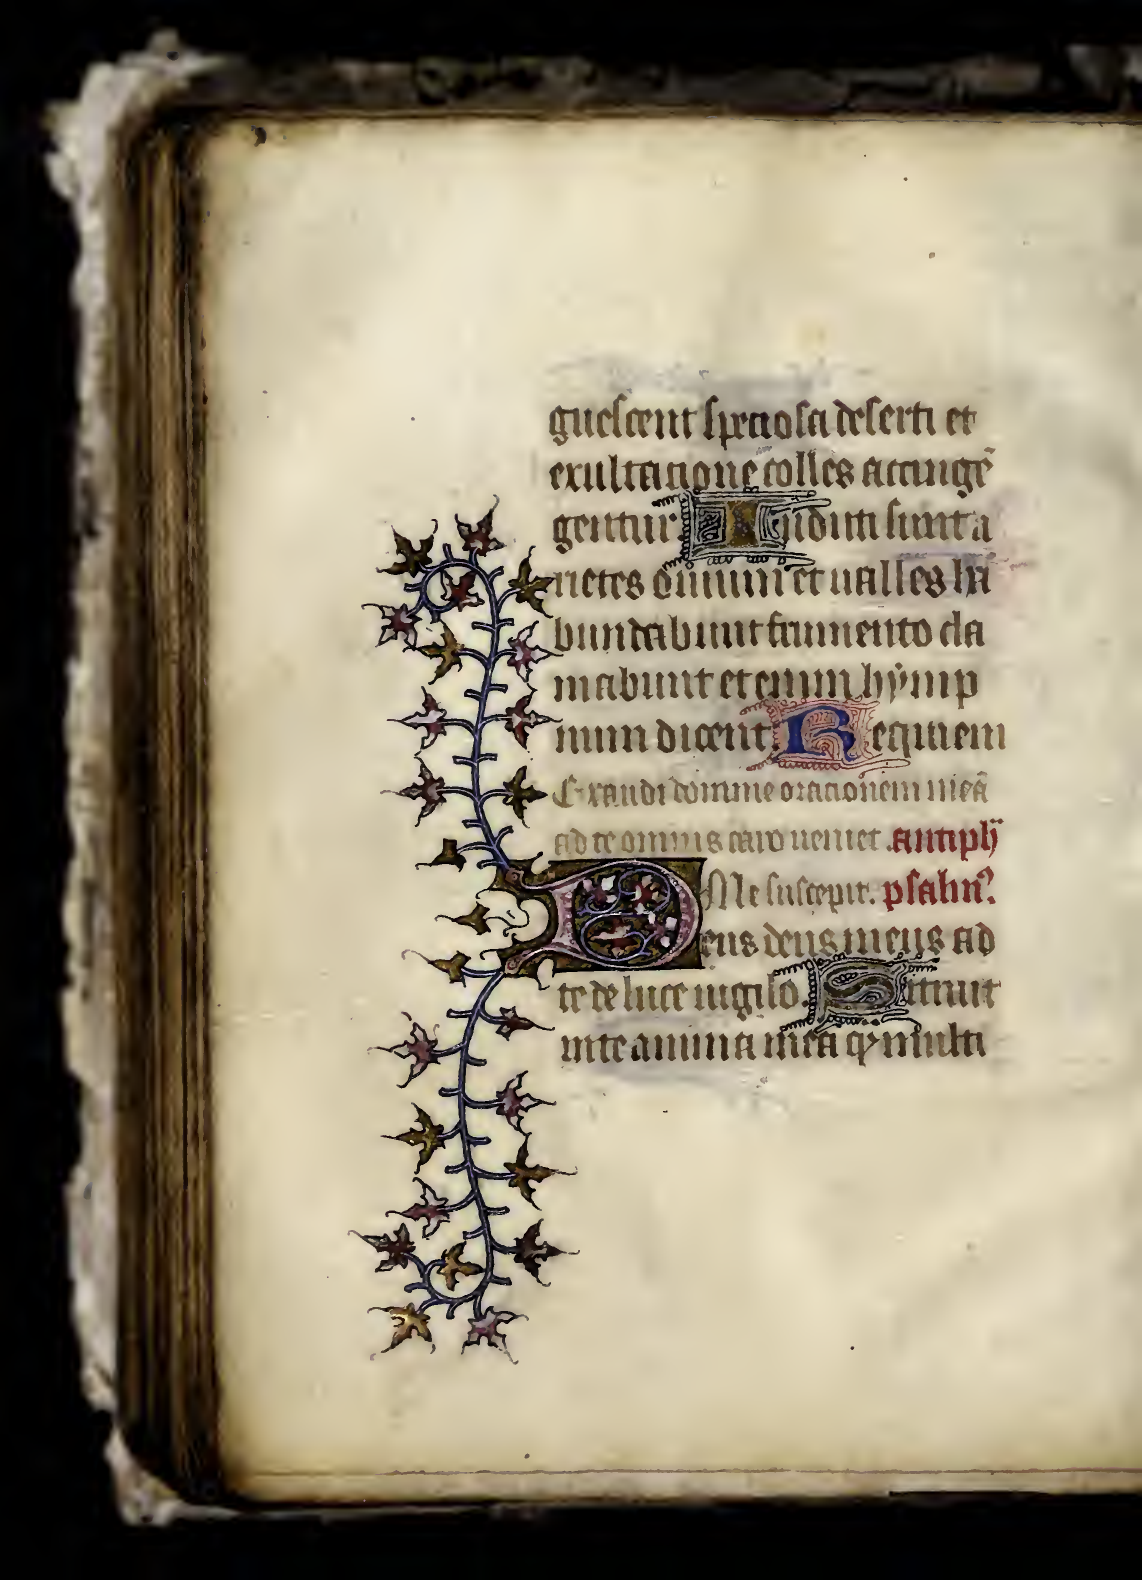 guescent speciosa deserti et
exultatione colles accingē
gentur Induti sunt a
rietes ouium et ualles ha
bundabunt frumento cla
mabunt etenim hẏmp
num dicent. Requiem
Exaudi domine orationem meā
ad te omnis caro ueniet. antiph̄
Me suscepit. psalm̄.
Deus deus meus ad
te de luce uigilo. Sitiuit
in te anima mea qͣ multi